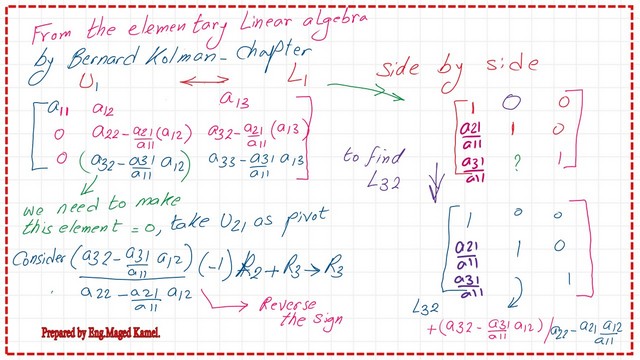 From the elementary Linear algebra
by Bernard Kolman - Chapter
U1 ↔ L1
side by side
a11 a12 a13
0 a22-a21/a11(a12) a32-a21/a11(a13)
0 (a32-a31/a11 a12) a33-a31/a11 a13
1 0 0
a21/a11 1 0
a31/a11 ? 1
to find
L32
we need to make
this element = 0, take U21 as pivot
Consider (a32-a31/a11 a12)/(a22-a21/a11 a12) (-1) R2+R3→R3
Reverse
the sign
1 0 0
a21/a11 1 0
a31/a11 1
L32
+(a32-a31/a11 a12)/a22-a21 a12/a11
Prepared by Eng.Maged Kamel.